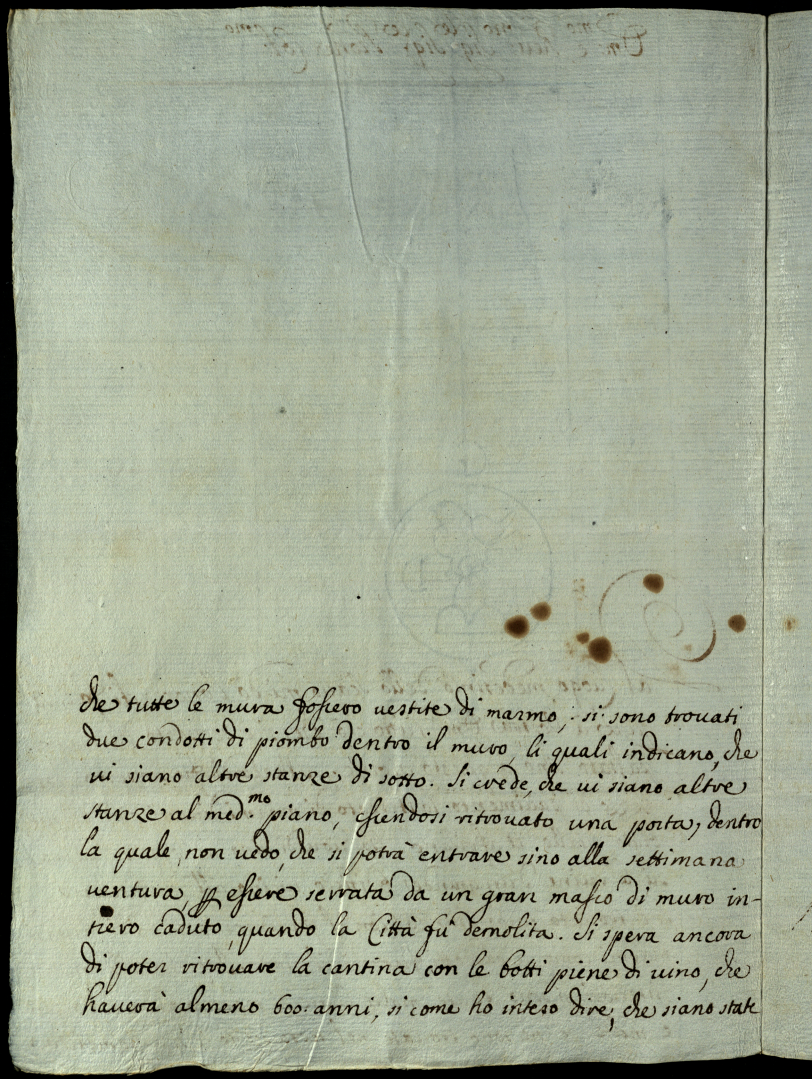 che tutte le mura fossero vestite di marmo, si sono trovati
due condotti di piombo dentro il muro, li quali indicano, che
vi siano altre stanze di sotto. Si crede, che vi siano altre
stanze al med.mo piano, essendosi ritrovato una porta, dentro
la quale non vedo, che si potrà entrare sino alla settimana
ventura, p essere serrata da un gran masso di muro in-
tiero caduto, quando la Città fù demolita. Si spera ancora
di poter ritrovare la cantina con le botti piene di vino, che
haverà almeno 600. anni, si come ho inteso dire, che siano state